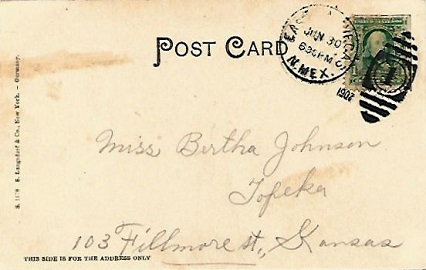 POST CARD
EAST
JUN 30
630 PM
N. MEX.
1907
S. 1178 S. Langsdorf & Co., New York. - Germany.
Miss Bertha Johnson
Topeka
103 Fillmore st., Kansas
THIS SIDE IS FOR THE ADDRESS ONLY